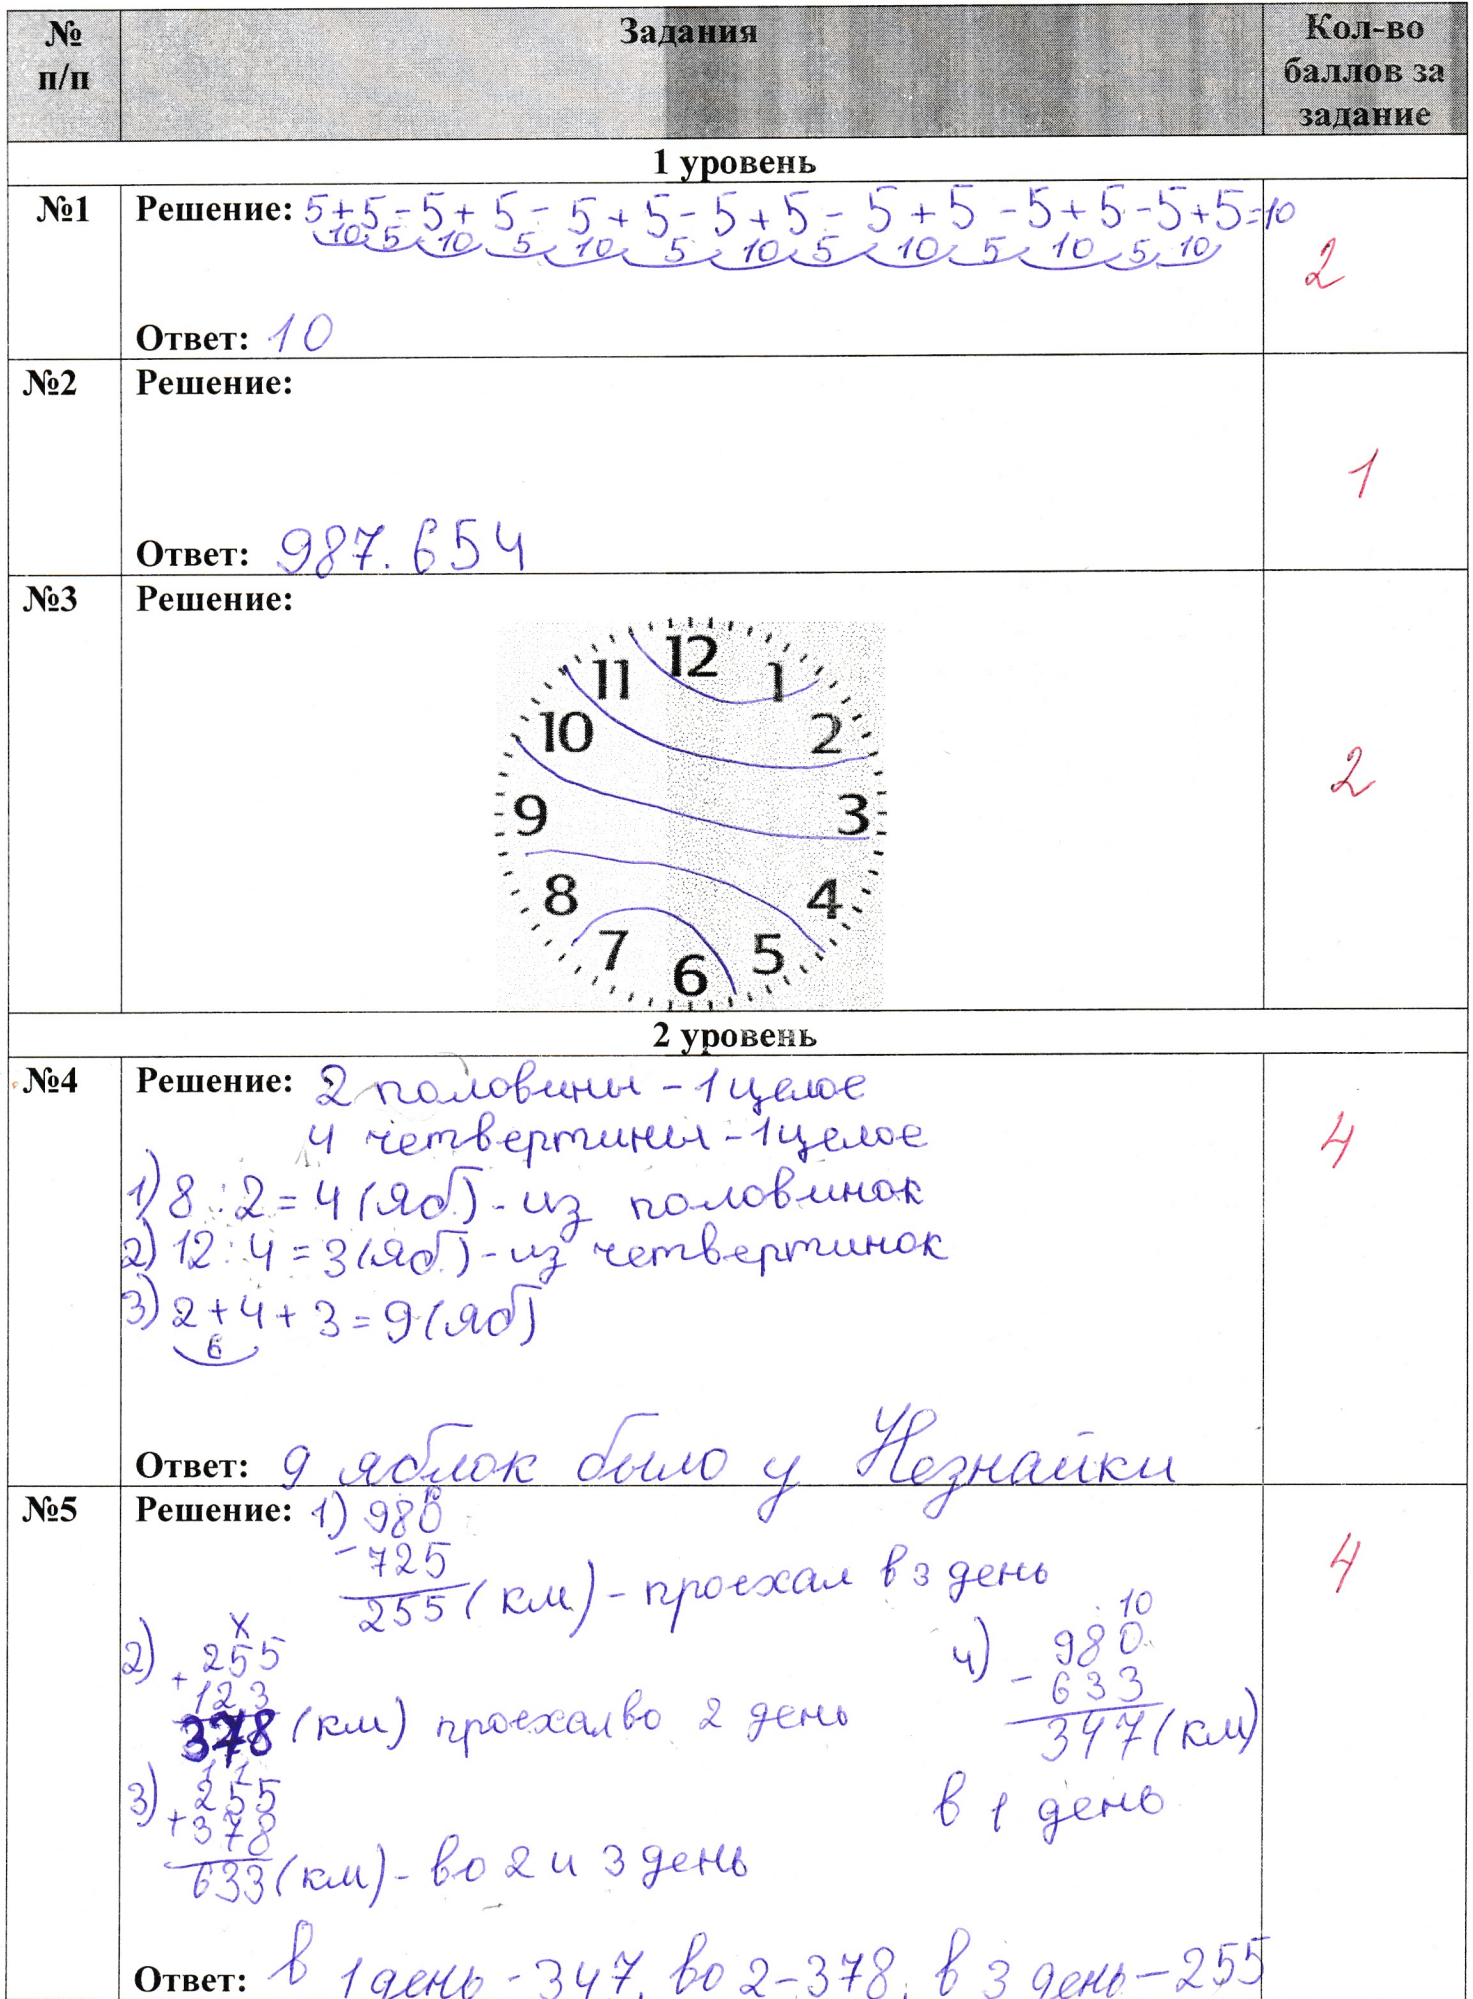 № п/п
Задания
Кол-во баллов за задание
1 уровень
№1
Решение: 5+5-5+5-5+5-5+5-5+5-5+5-5+5=10
10 5 10 5 10 5 10 5 10 5 10 5 10
2
Ответ: 10
№2
Решение:
1
Ответ: 987.654
№3
Решение:
12
11 1
10 2
9 3
8 4
7 5
6
2
2 уровень
№4
Решение: 2 половины - 1 целое
4 четвертины - 1 целое
4
1) 8 : 2 = 4 (яб) - из половинок
2) 12 : 4 = 3 (яб) - из четвертинок
3) 2 + 4 + 3 = 9 (яб)
6
Ответ: 9 яблок было у Незнайки
№5
Решение: 1) 980
10
- 725
255 (км) - проехал в 3 день
4
2) 255
+ 123
378 (км) проехал во 2 день
4) 980
10
- 633
347 (км)
в 1 день
3) 255
1 1
+ 378
633 (км) - во 2 и 3 день
Ответ: в 1 день - 347, во 2 - 378, в 3 день - 255